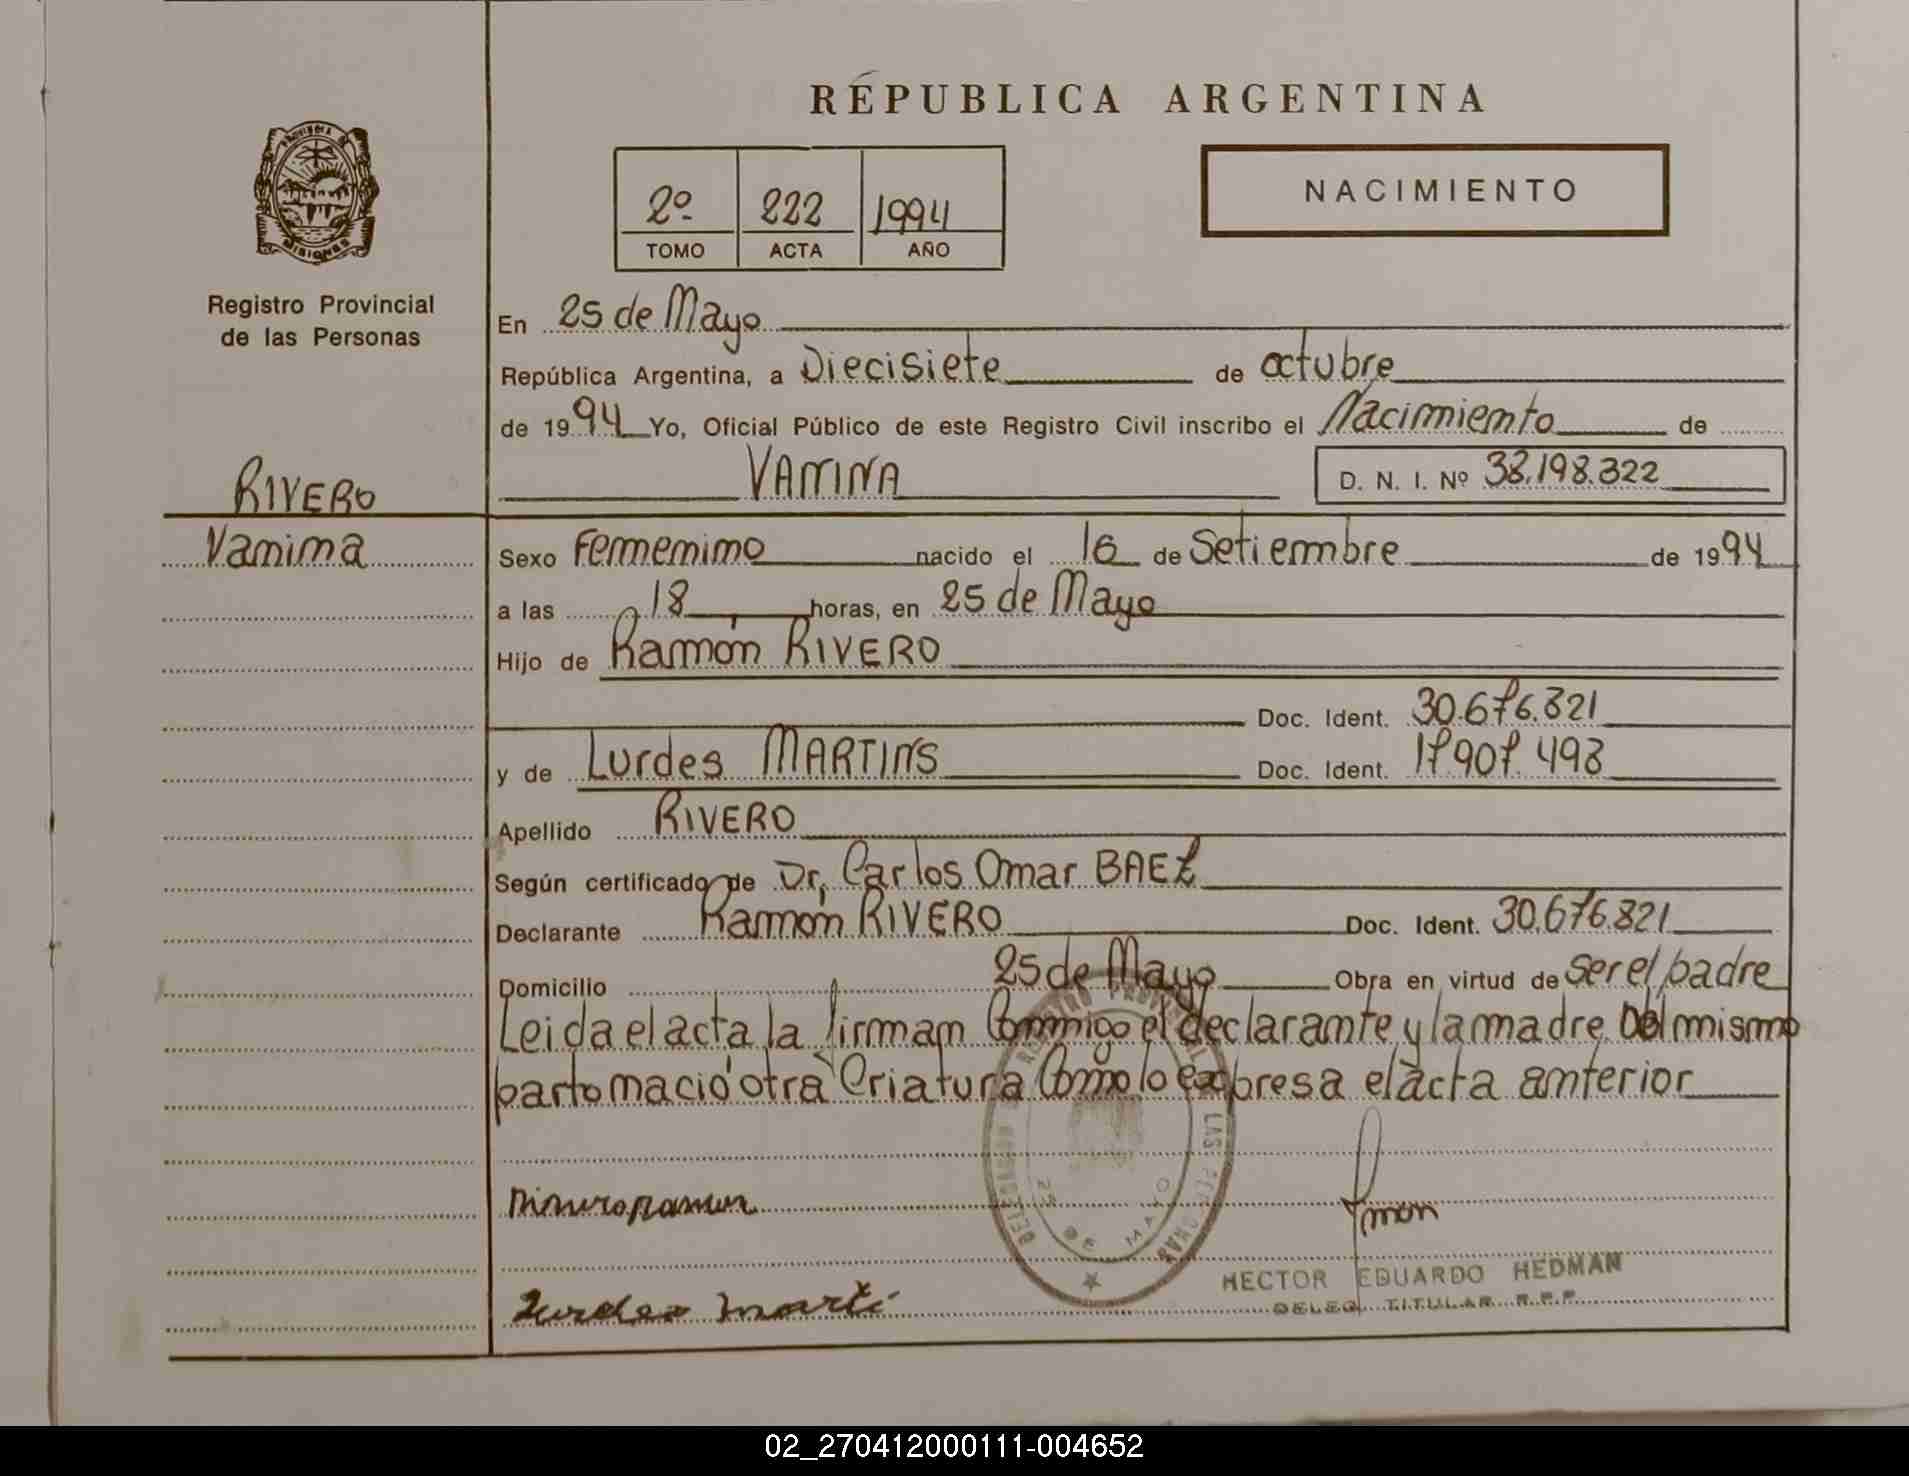 RÉPUBLICA ARGENTINA
PROVINCIA DE
MISIONES
Registro Provincial
de las Personas
2º 222 1994
TOMO ACTA AÑO
NACIMIENTO
En 25 de Mayo
República Argentina, a Diecisiete de octubre
de 1994 Yo, Oficial Público de este Registro Civil inscribo el Nacimiento de
VANINA D. N. I. Nº 38.198.322
RIVERO
Vanina
Sexo Femenino nacido el 16 de Setiembre de 1994
a las 18 horas, en 25 de Mayo
Hijo de Ramón RIVERO
Doc. Ident. 30.676.821
y de Lurdes MARTINS Doc. Ident. 17.907.498
Apellido RIVERO
Según certificado de Dr, Carlos Omar BAEZ
Declarante Ramón RIVERO Doc. Ident. 30.676.821
Domicilio 25 de Mayo Obra en virtud de ser el padre
Leida el acta la firman Conmigo el declarante y la madre. Del mismo
parto nació otra Criatura Como lo expresa el acta anterior
REGISTRO PROVINCIAL DE LAS PERSONAS
DELEGACION
25 DE MAYO
Lurdes Marti
HECTOR EDUARDO HEDMAN
DELEG. TITULAR R.P.P.
02_270412000111-004652